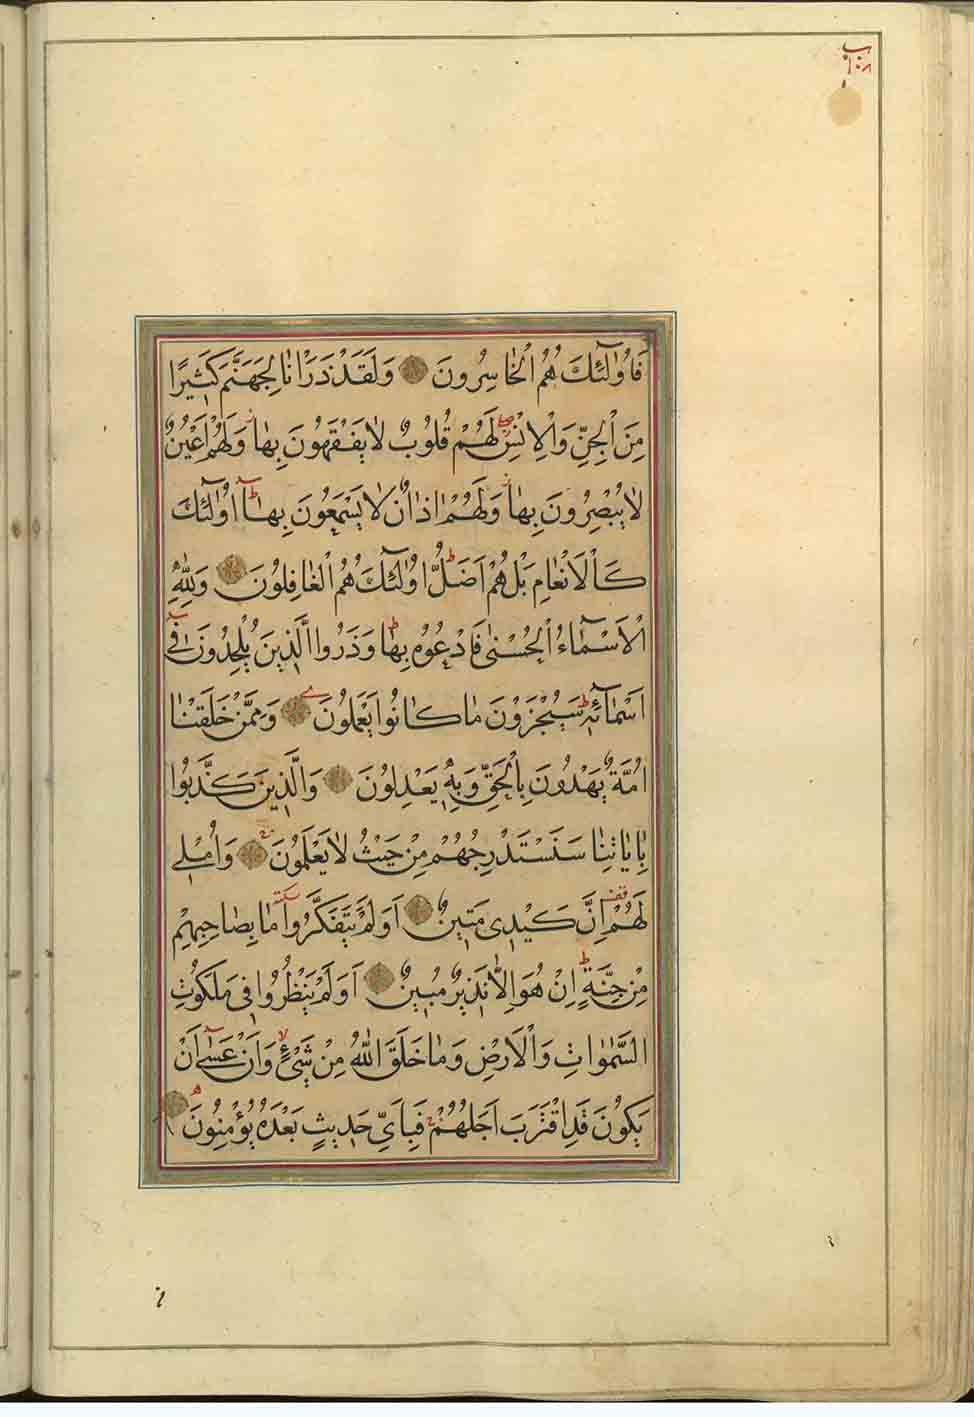 فَاُولٰٓئِكَ هُمُ الْخٰاسِرُونَ وَلَقَدْ ذَرَاْنٰا لِجَهَنَّمَ كَثٖيرًا
مِنَ الْجِنِّ وَالْاِنْسِ لَهُمْ قُلُوبٌ لٰا يَفْقَهُونَ بِهٰا وَلَهُمْ اَعْيُنٌ
لٰا يُبْصِرُونَ بِهٰا وَلَهُمْ اٰذٰانٌ لٰا يَسْمَعُونَ بِهٰا اُولٰٓئِكَ
كَالْاَنْعٰامِ بَلْ هُمْ اَضَلُّ اُولٰٓئِكَ هُمُ الْغٰافِلُونَ وَلِلّٰهِ
الْاَسْمٰٓاءُ الْحُسْنٰى فَادْعُوهُ بِهٰا وَذَرُوا الَّذٖينَ يُلْحِدُونَ فٖٓي
اَسْمٰٓائِهٖ سَيُجْزَوْنَ مٰا كٰانُوا يَعْمَلُونَ وَمِمَّنْ خَلَقْنٰا
اُمَّةٌ يَهْدُونَ بِالْحَقِّ وَبِهٖ يَعْدِلُونَ وَالَّذٖينَ كَذَّبُوا
بِاٰيٰاتِنٰا سَنَسْتَدْرِجُهُمْ مِنْ حَيْثُ لٰا يَعْلَمُونَ وَاُمْلٖي
لَهُمْ اِنَّ كَيْدٖى مَتٖينٌ اَوَلَمْ يَتَفَكَّرُوا مٰا بِصٰاحِبِهِمْ
مِنْ جِنَّةٍ اِنْ هُوَ اِلّٰا نَذٖيرٌ مُبٖينٌ اَوَلَمْ يَنْظُرُوا فٖى مَلَكُوتِ
السَّمٰوٰاتِ وَالْاَرْضِ وَمٰا خَلَقَ اللّٰهُ مِنْ شَيْءٍ وَاَنْ عَسٰٓى اَنْ
يَكُونَ قَدِ اقْتَرَبَ اَجَلُهُمْ فَبِاَىِّ حَدٖيثٍ بَعْدَهُ يُؤْمِنُونَ